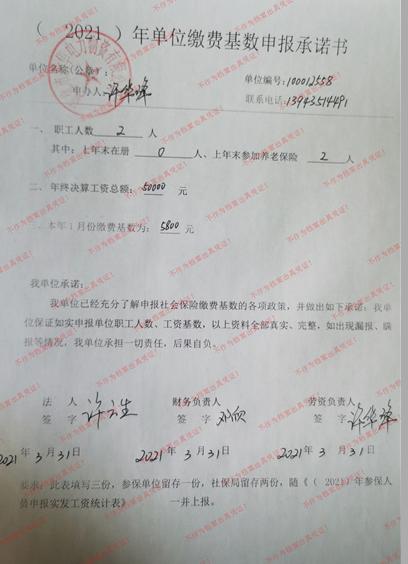 （ 2021 ）年单位缴费基数申报承诺书
单位名称(公章)： 单位编号：10012558
申办人：许华峰 联系电话：13943514491
一、 职工人数 2 人
其中：上年末在册 0 人、上年末参加养老保险 2 人
二、年终决算工资总额：50000 元
三、本年1月份缴费基数为：5800 元
我单位承诺：
我单位已经充分了解申报社会保险缴费基数的各项政策，并做出如下承诺：我单
位保证如实申报单位职工人数、工资基数，以上资料全部真实、完整，如出现漏报、瞒
报等情况，我单位承担一切责任，后果自负。
法 人 财务负责人 劳资负责人
签 字 签 字 签 字 许华峰
2021年 3月 31日 2021年 3月 31日 2021年 3月 31日
要求：此表填写三份，参保单位留存一份，社保局留存两份，随《（ 2021）年参保人
员申报实发工资统计表》 一并上报。
不作为档案出具凭证！